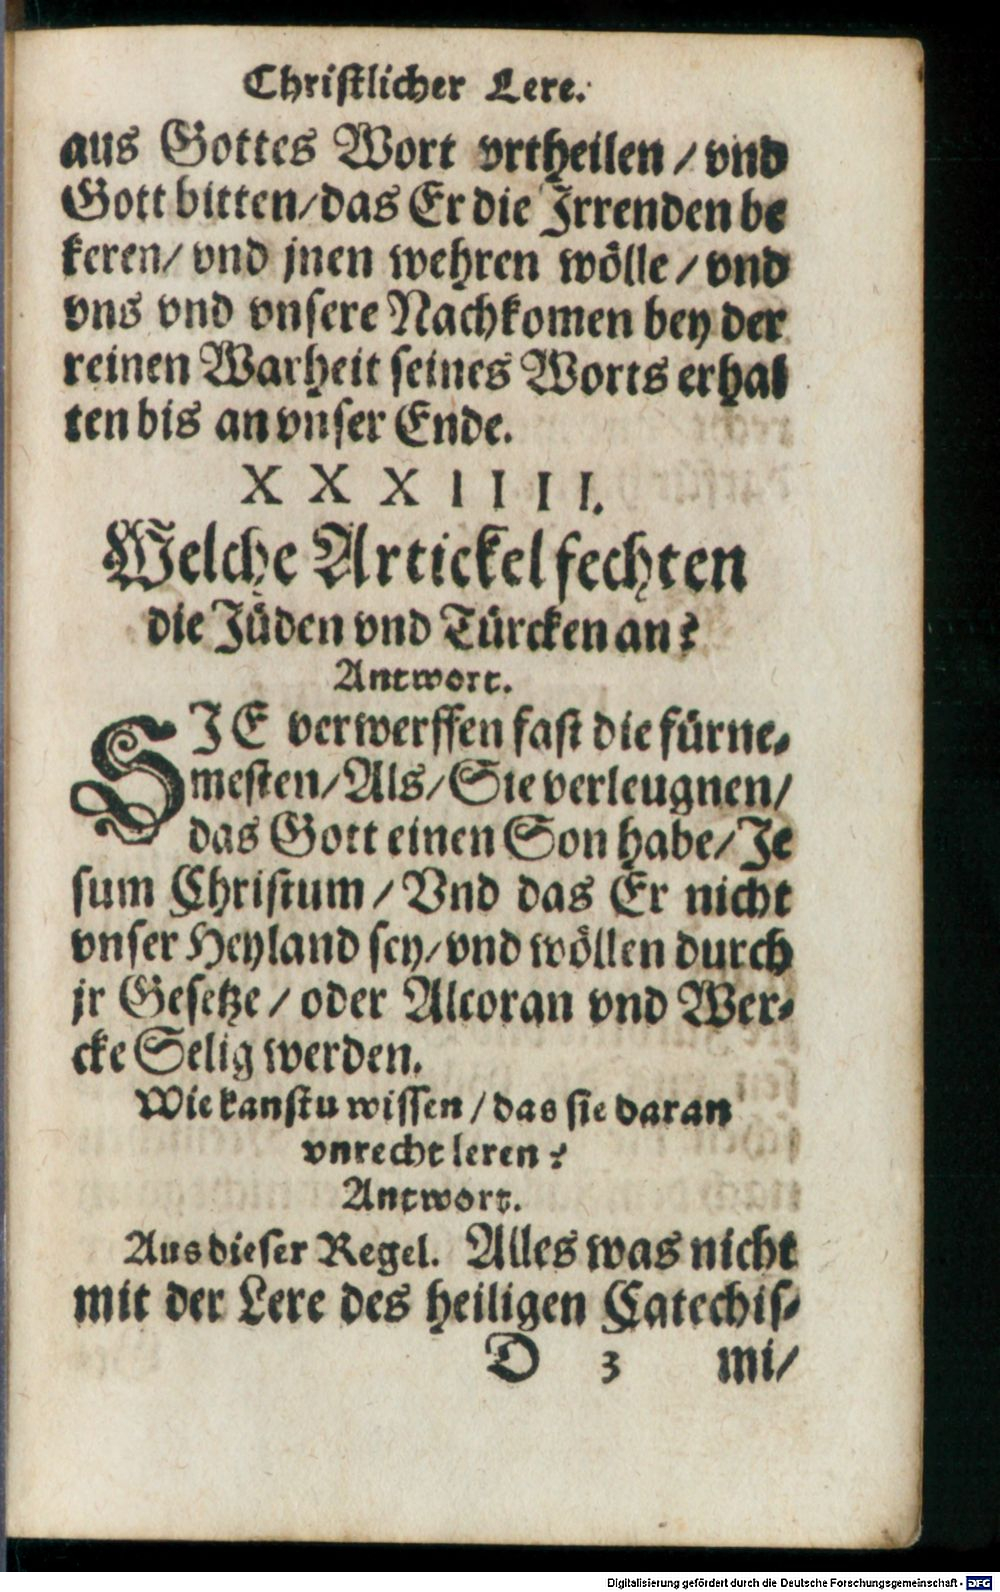 Christlicher Lere.
aus Gottes Wort vrtheilen / vnd
Gott bitten/das Er die Irrenden be
keren/ vnd jnen wehren wölle / vnd
vns vnd vnsere Nachkomen bey der
reinen Warheit seines Worts erhal
ten bis an vnser Ende.
X X X I I I I.
Welche Artickel fechten
die Jüden vnd Türcken an?
Antwort.
SIE verwerffen fast die fürne-
mesten/Als/Sie verleugnen/
das Gott einen Son habe/Je
sum Christum / Vnd das Er nicht
vnser Heyland sey/vnd wöllen durch
jr Gesetze / oder Alcoran vnd Wer-
cke Selig werden.
Wie kanstu wissen / das sie daran
vnrecht leren?
Antwort.
Aus dieser Regel. Alles was nicht
mit der Lere des heiligen Catechis-
D 3 mi/
Digitalisierung gefördert durch die Deutsche Forschungsgemeinschaft - DFG